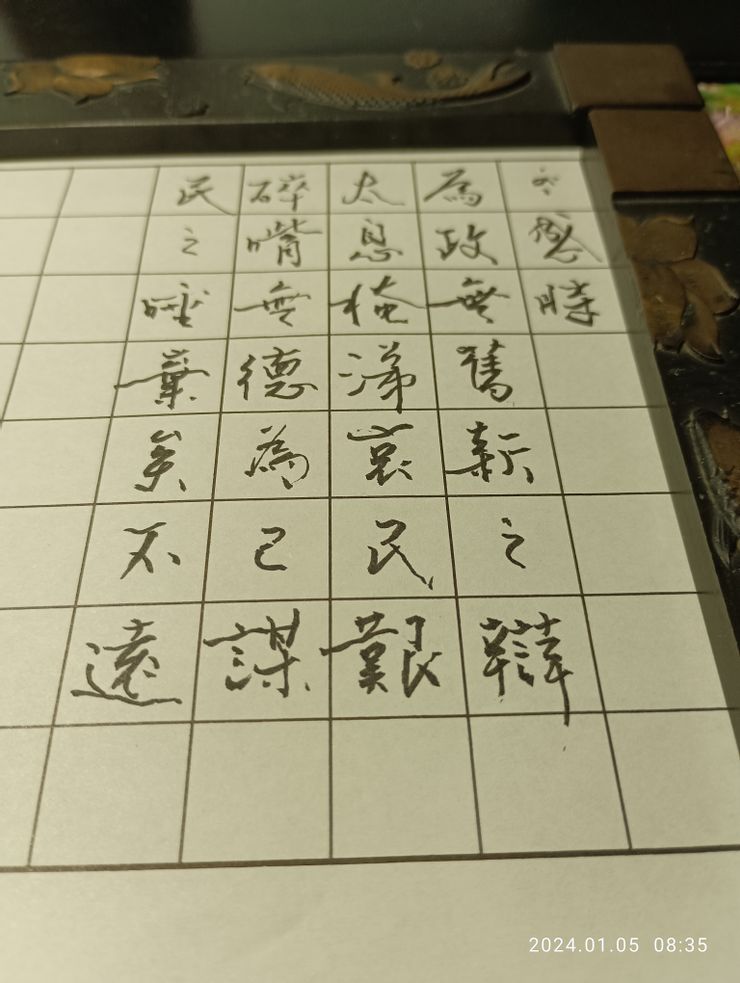 感時
為政無舊新之辯
太息掩涕哀民艱
碎嘴無德為己謀
民之唾棄矣不遠
2024.01.05 08:35